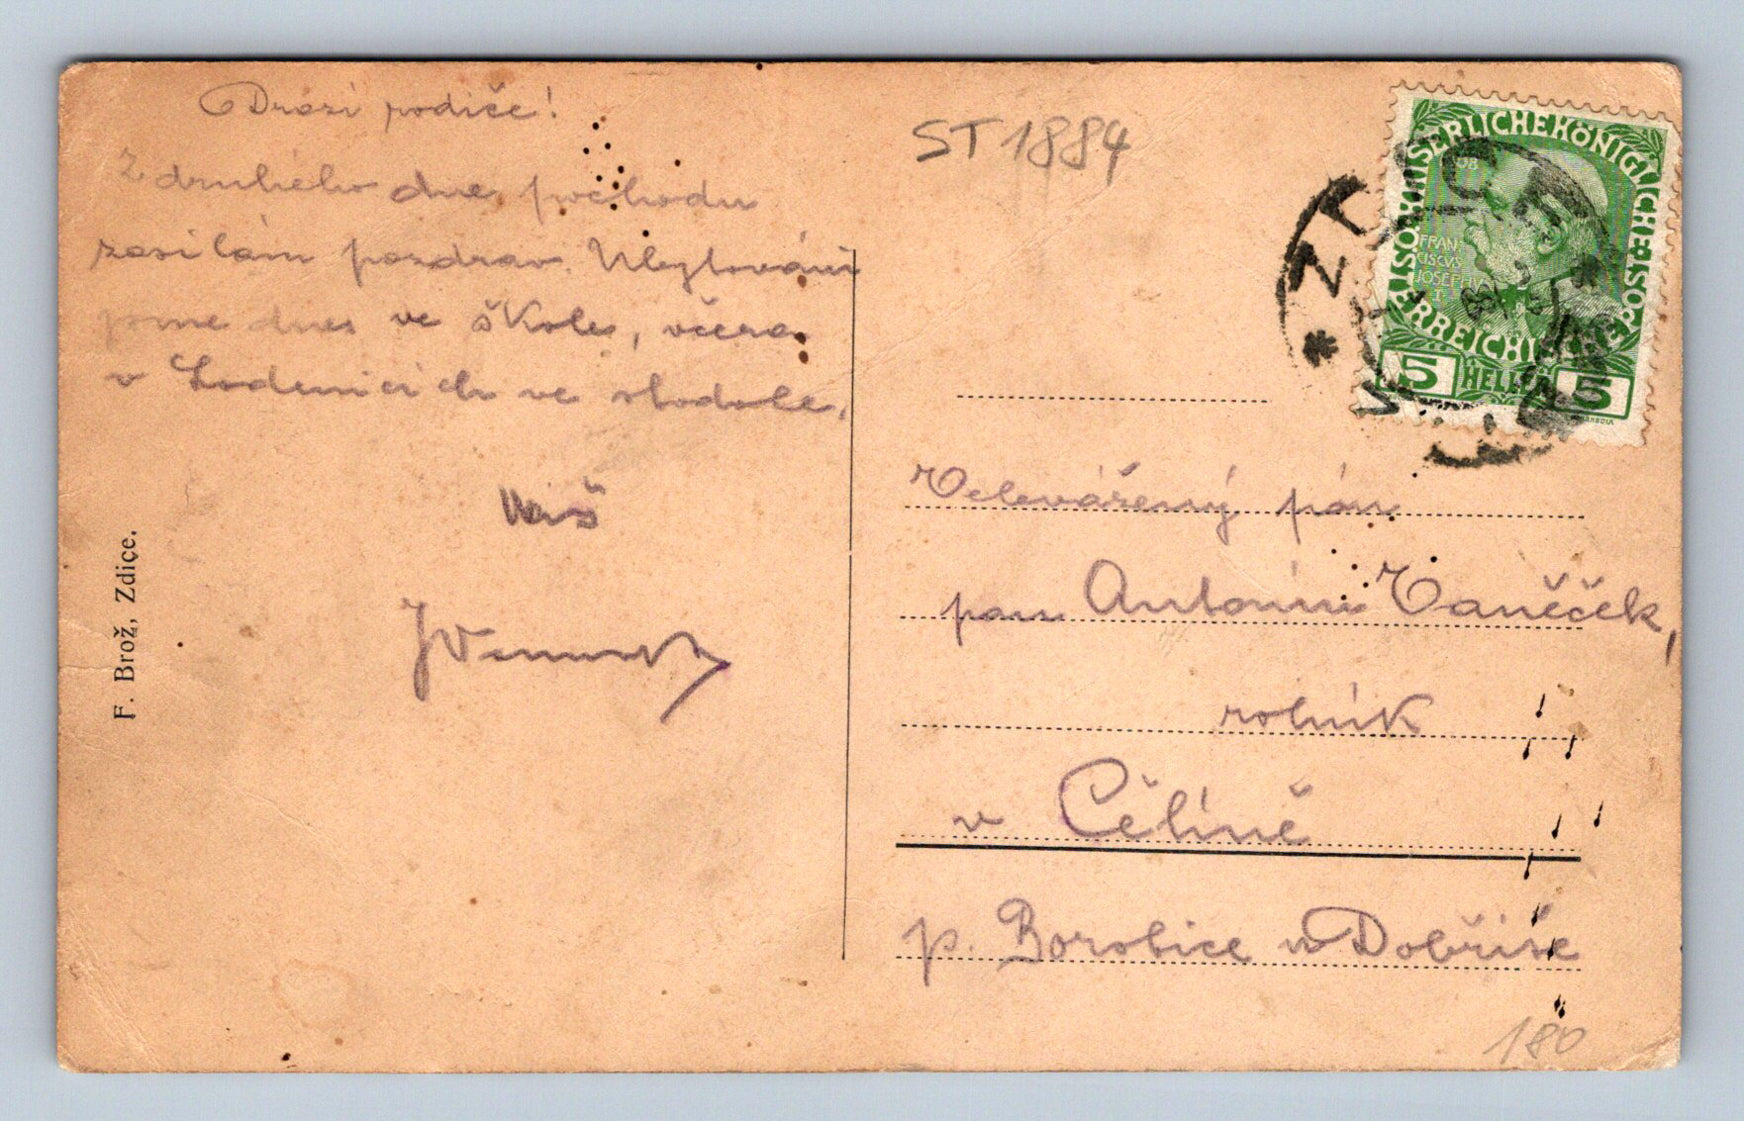 Drazí rodiče!
Z druhého dne pochodu
zasílám pozdrav. Ubytováni
jsme dnes ve škole, včera
v Lodenicích ve stodole.
Váš
F. Brož, Zdice.
ST 1884
KAISERLICHEKÖNIGLICHE
ÖSTERREICHISCHE
1908
FRAN
CISCVS
JOSEPHVS
I.
5 HELLER 5
ZDIC
Velevážený pán
pan Antonín Vaněček,
rolník
v Čělině
p. Borotice u Dobříše
180